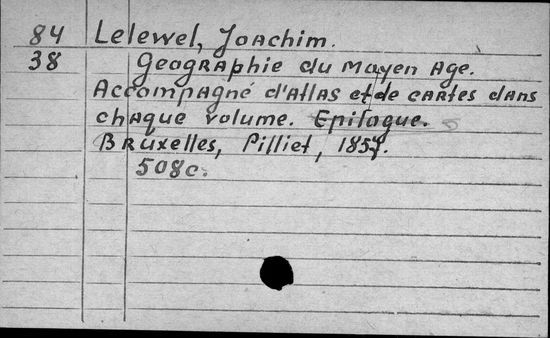 84 Lelewel, Joachim.
38 Geographie du Moyen Age.
Accompagné d'Atlas et de cartes dans
chaque volume. Epilogue.
Bruxelles, Pilliet, 1857.
508c.